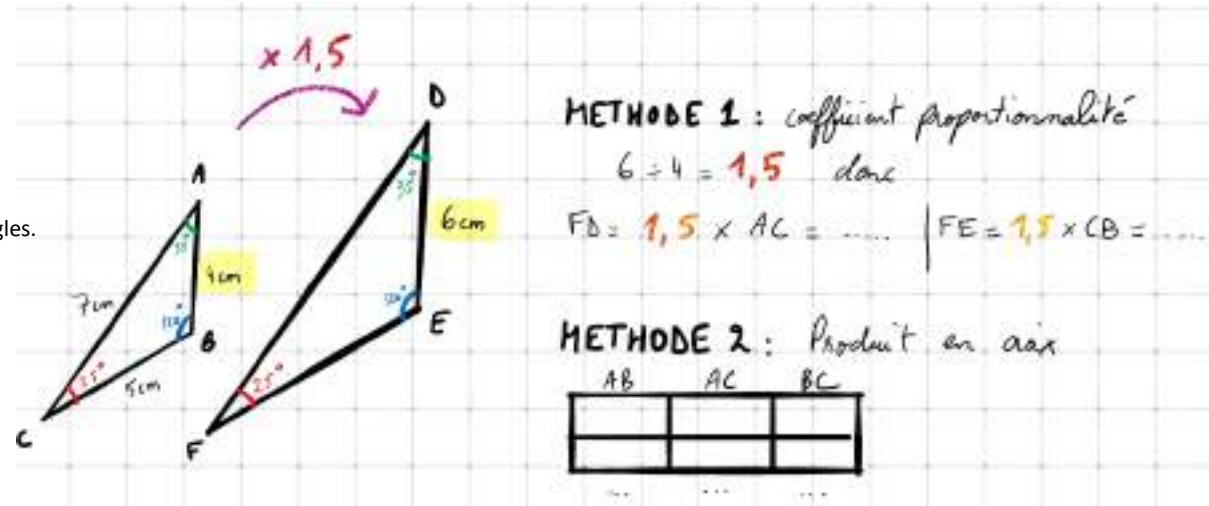 gles.
× 1,5
A
4cm
7cm
B
5cm
25°
C
D
35°
6cm
E
25°
F
METHODE 1 : coefficient proportionnalité
6 ÷ 4 = 1,5 donc
FD = 1,5 × AC = ..... | FE = 1,5 × CB = .....
METHODE 2 : Produit en croix
AB AC BC
... ... ...